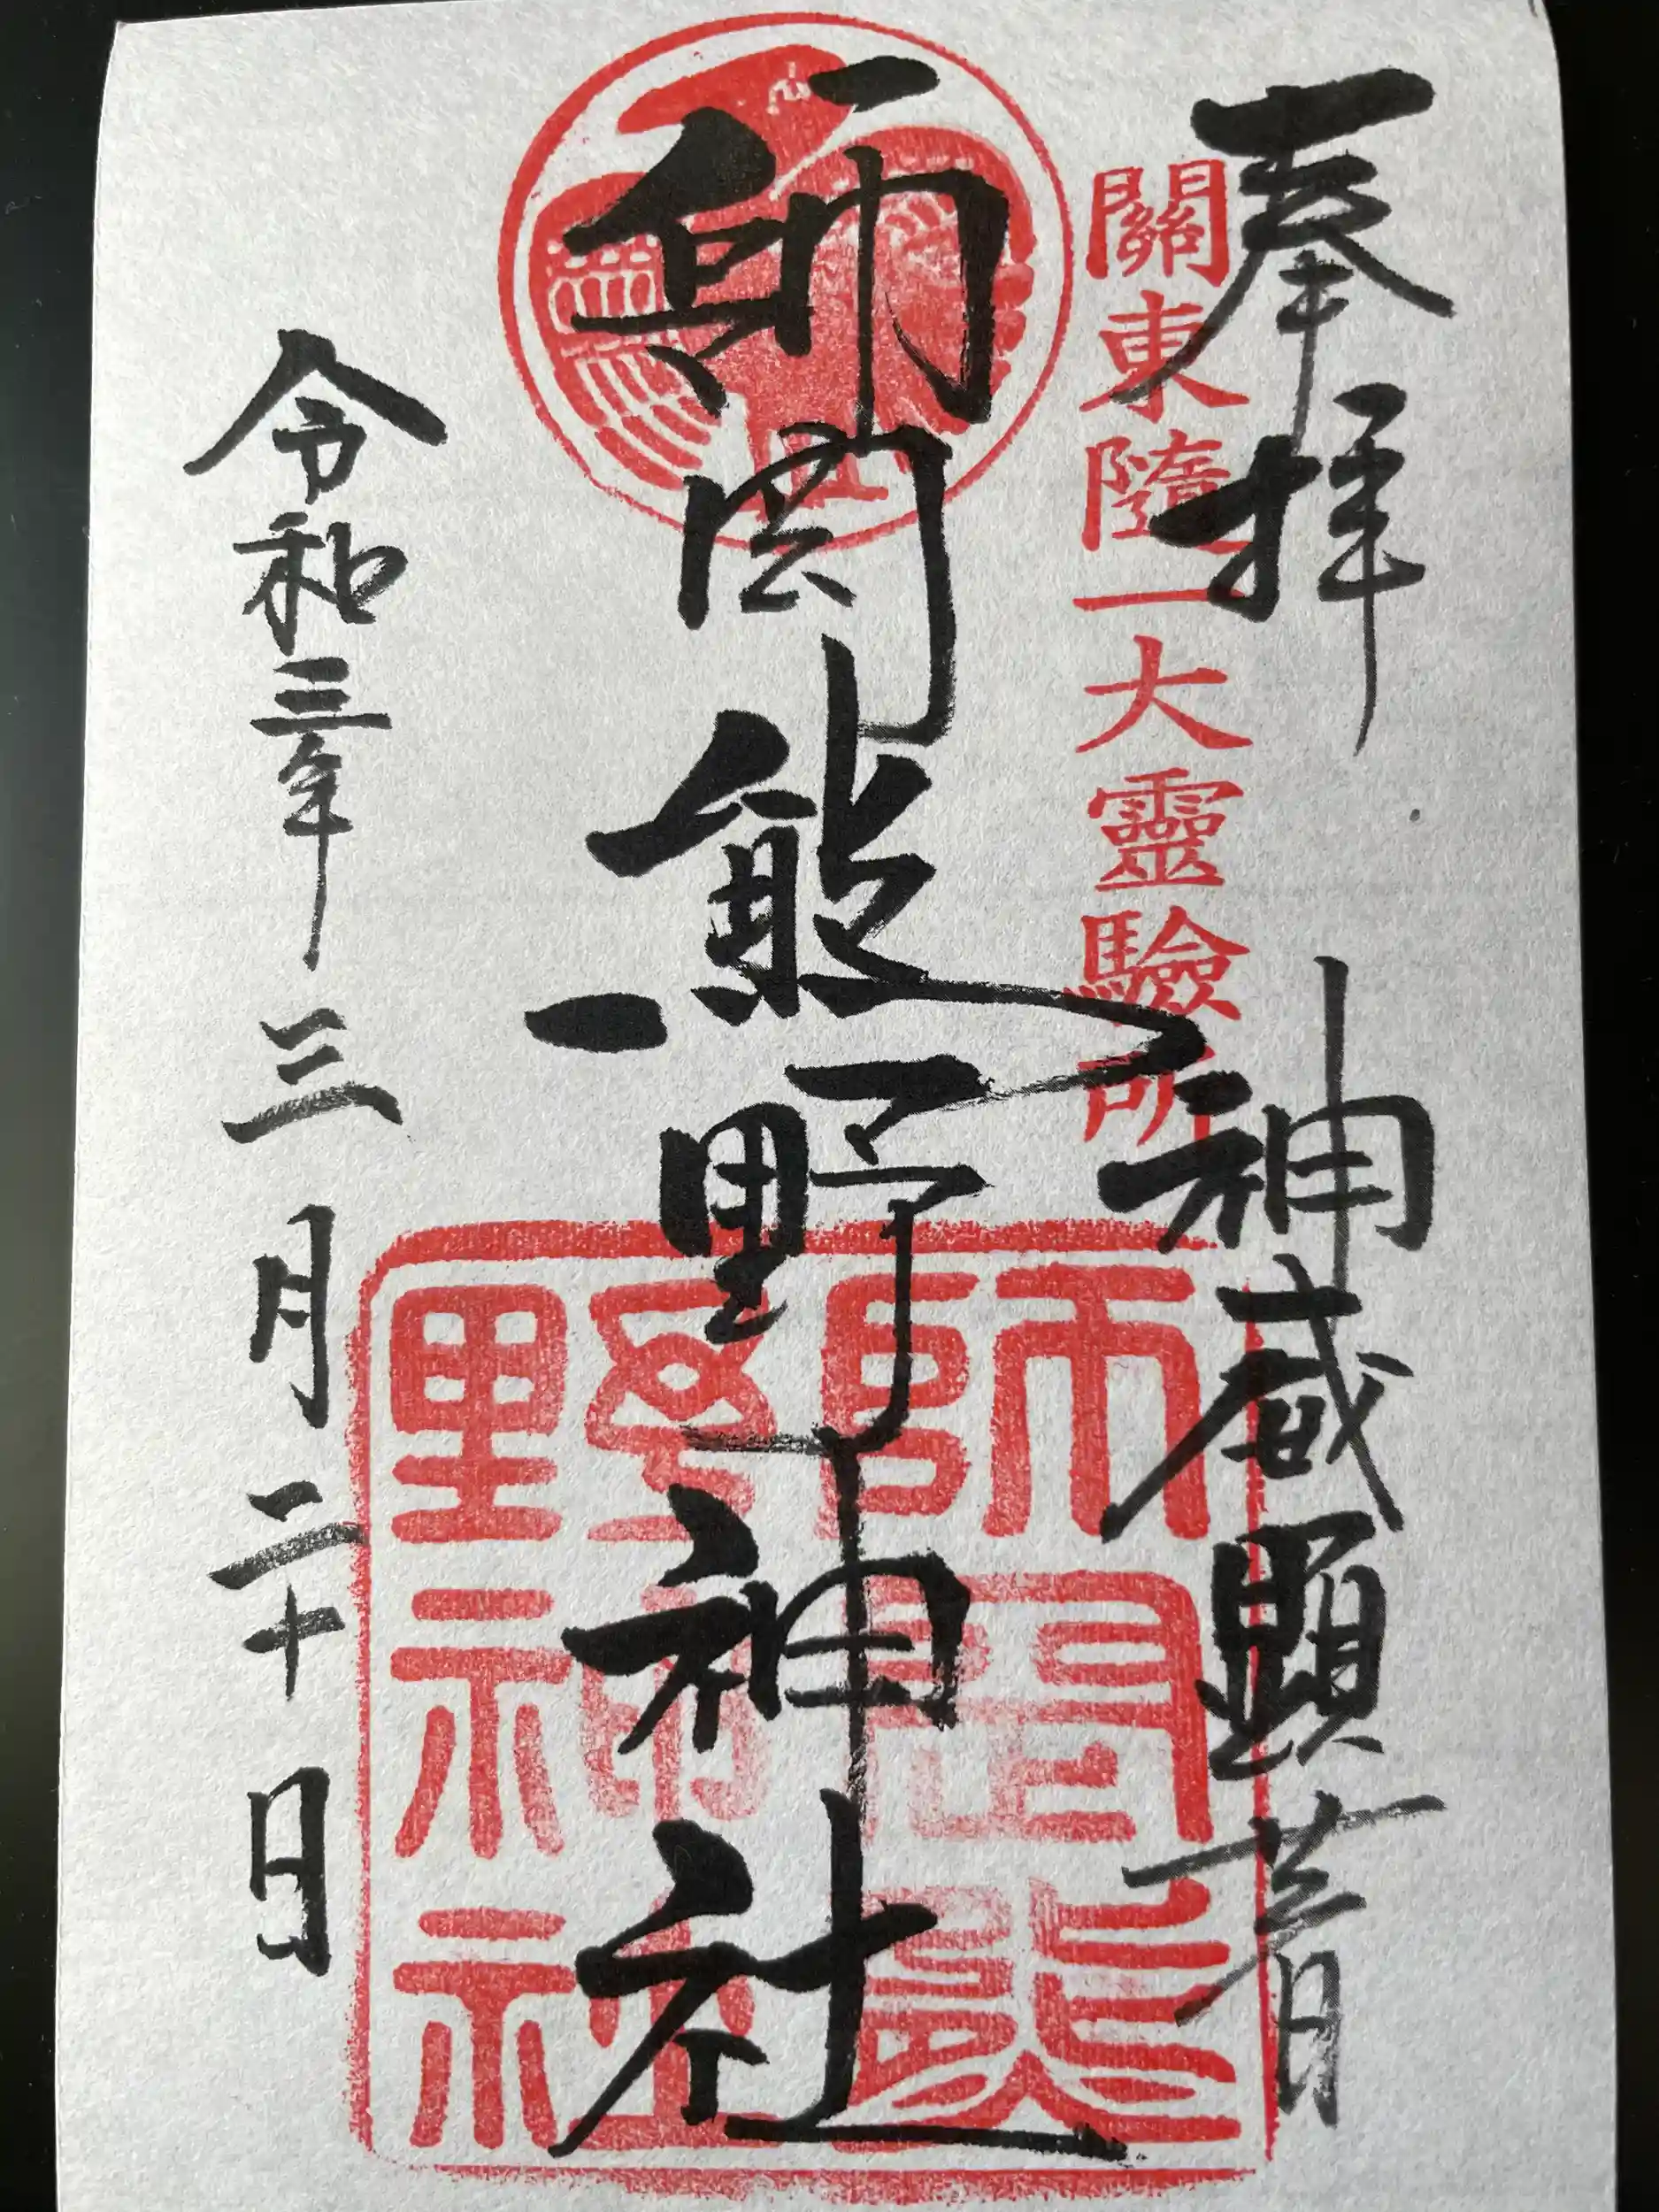 奉拝　神威顕著
關東随一大靈驗所
師岡熊野神社
師岡熊
野神社
令和三年三月二十日